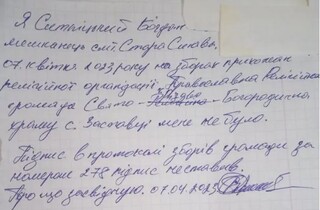 Я Ситніцкий Богдан
мешканць смт. Стара Синява,
07. квітня 2023 року на зборах прихожан
релігійної організації Православна Релігійна
громада Свято - Різдва - Богородичного
храму с. Заставці мене не було.
Підпис в протоколі зборів громади за
номером 278 підпис не ставив.
Про що засвідчую. 07.04.2023